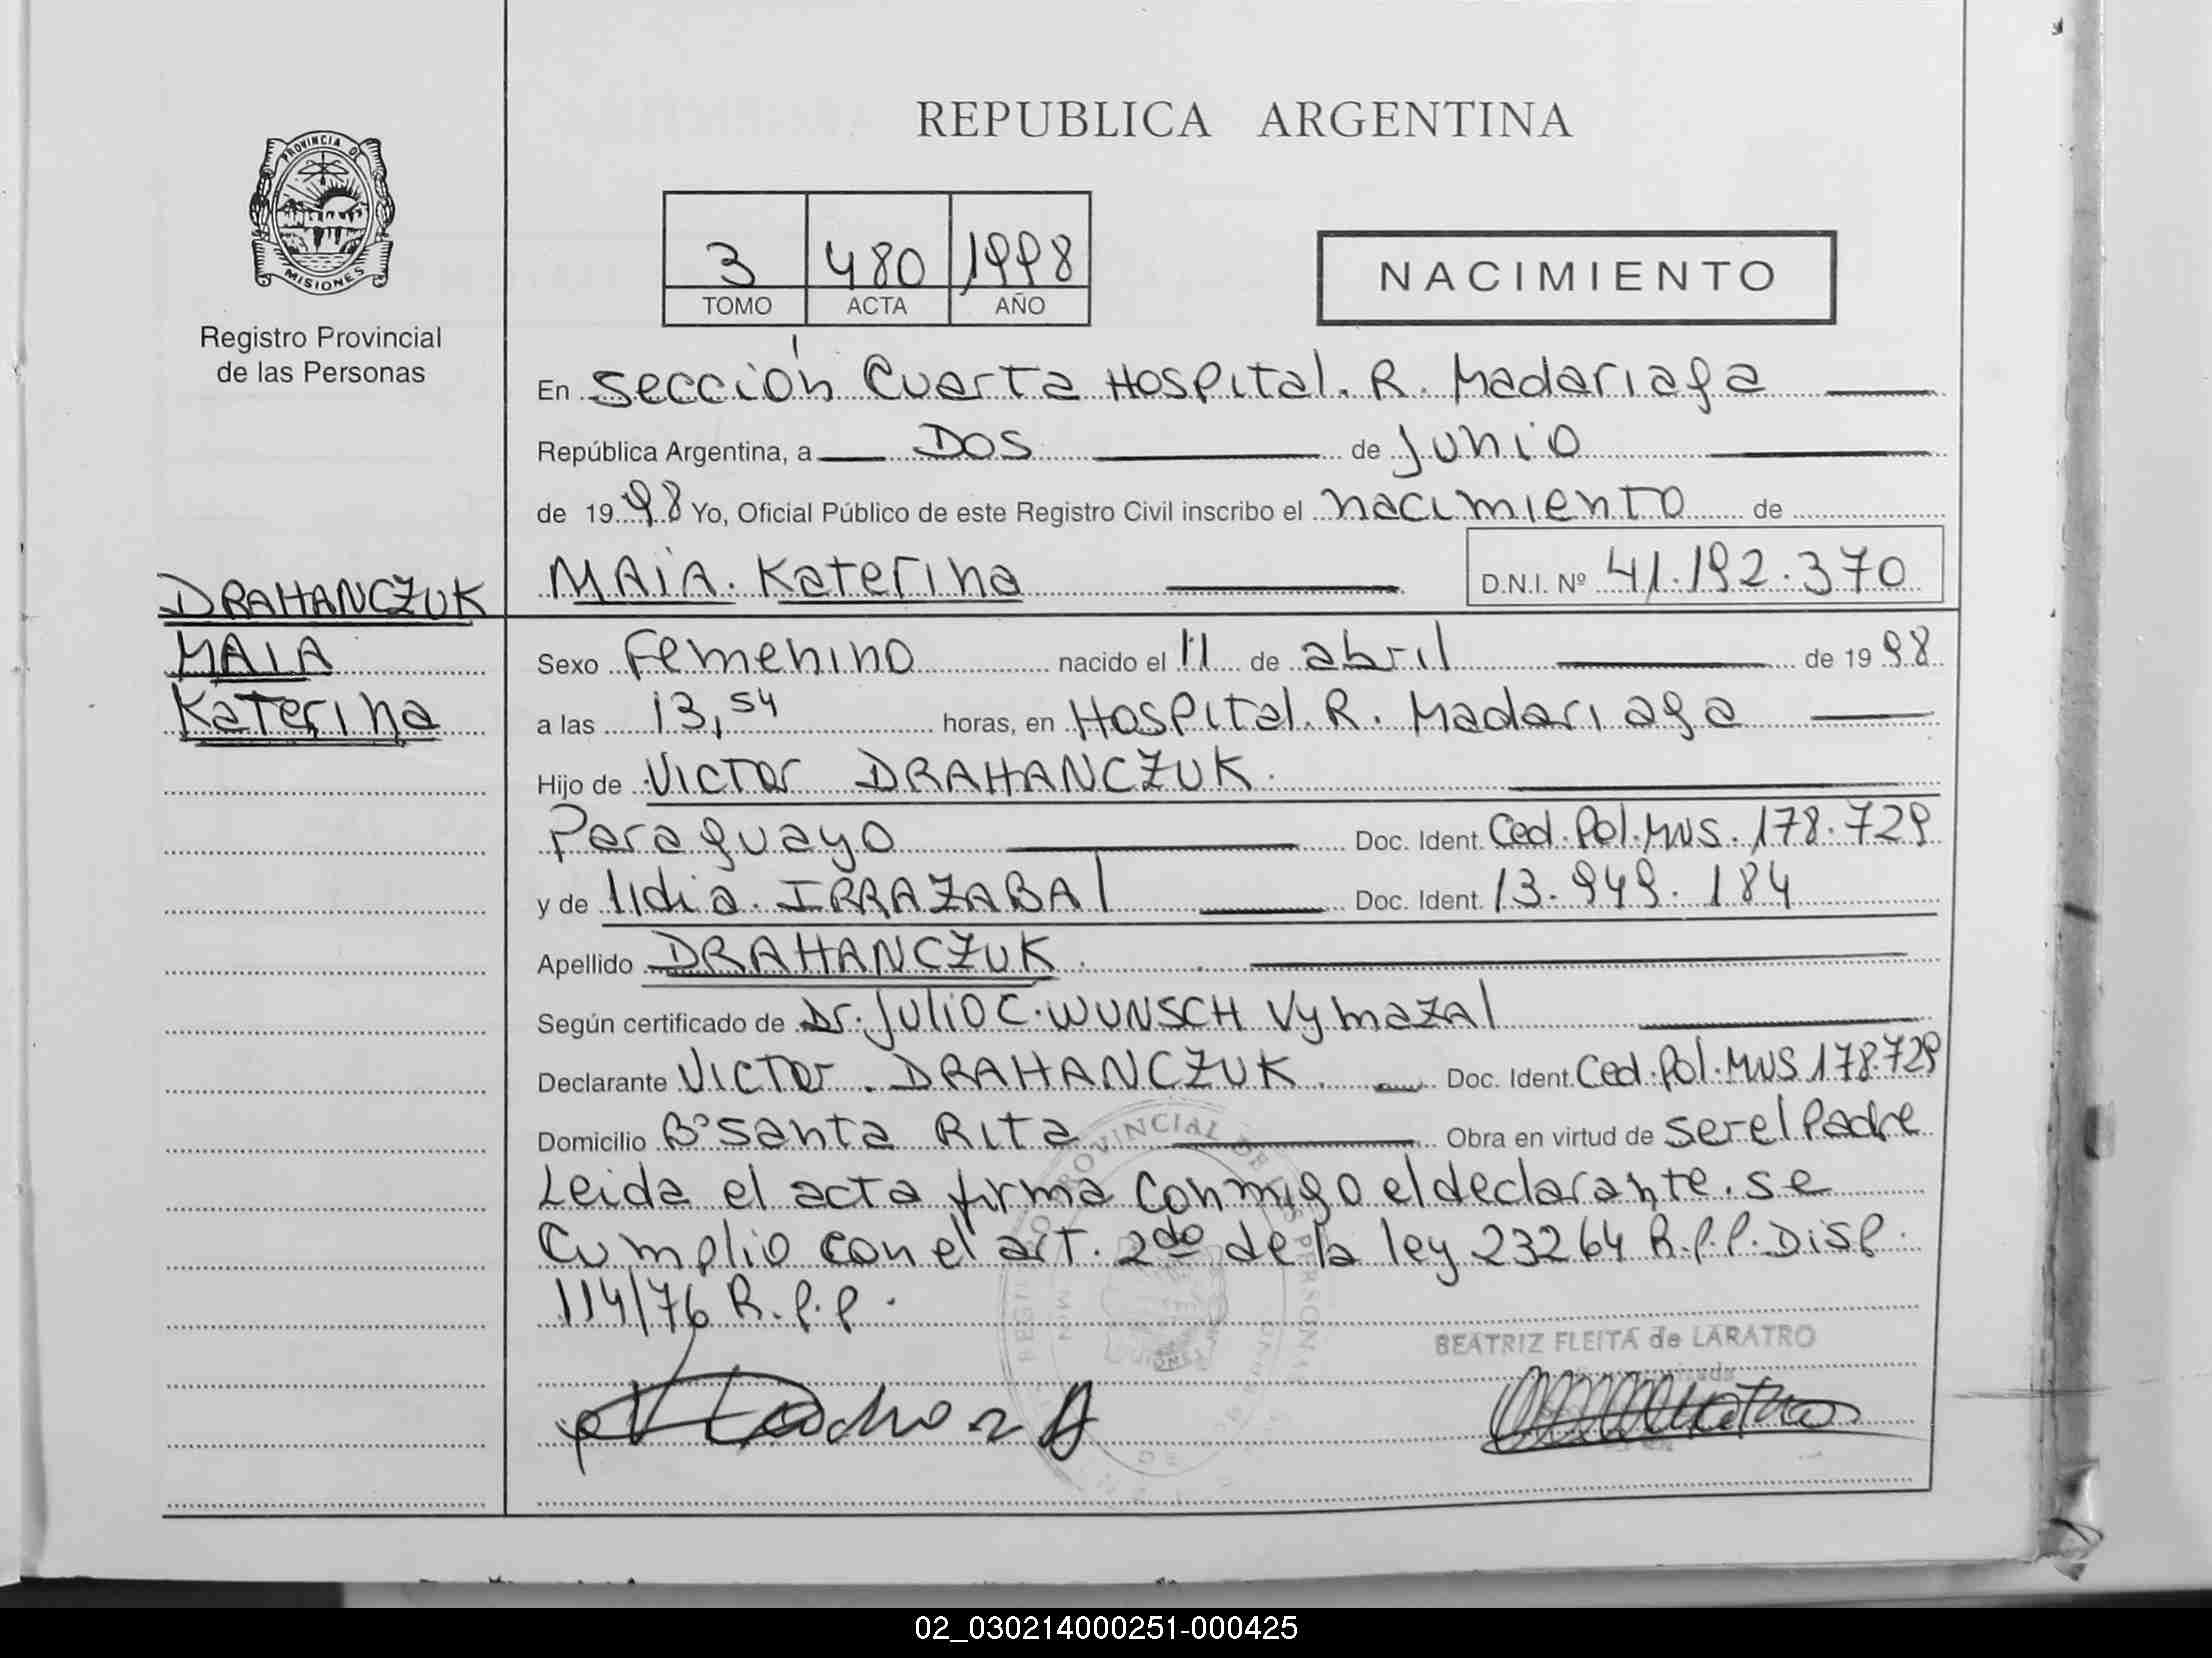 REPUBLICA ARGENTINA
PROVINCIA DE
MISIONES
Registro Provincial
de las Personas
3 480 1998
TOMO ACTA AÑO
NACIMIENTO
En Sección Cuarta Hospital. R. Madariaga
República Argentina, a Dos de Junio
de 1998 Yo, Oficial Público de este Registro Civil inscribo el nacimiento de
MAIA. Katerina D.N.I. Nº 41.192.370
DRAHANCZUK
MAIA
Katerina
Sexo Femenino nacido el 11 de abril de 1998
a las 13,54 horas, en Hospital. R. Madariaga
Hijo de VICTOR DRAHANCZUK.
Paraguayo Doc. Ident. Ced.Pol.MNS.178.729
y de lidia. IRRAZABAl Doc. Ident. 13.949.184
Apellido DRAHANCZUK.
Según certificado de Dr. Julio C. WUNSCH Vymazal
Declarante VICTOR. DRAHANCZUK. Doc. Ident. Ced.Pol.MNS 178.729
Domicilio Bº Santa Rita Obra en virtud de ser el Padre
Leida el acta firma conmigo el declarante. se
Cumplio con el art. 2do de la ley 23264 R.P.P. Disp.
114/76 R.P.P.
BEATRIZ FLEITA de LARATRO
02_030214000251-000425